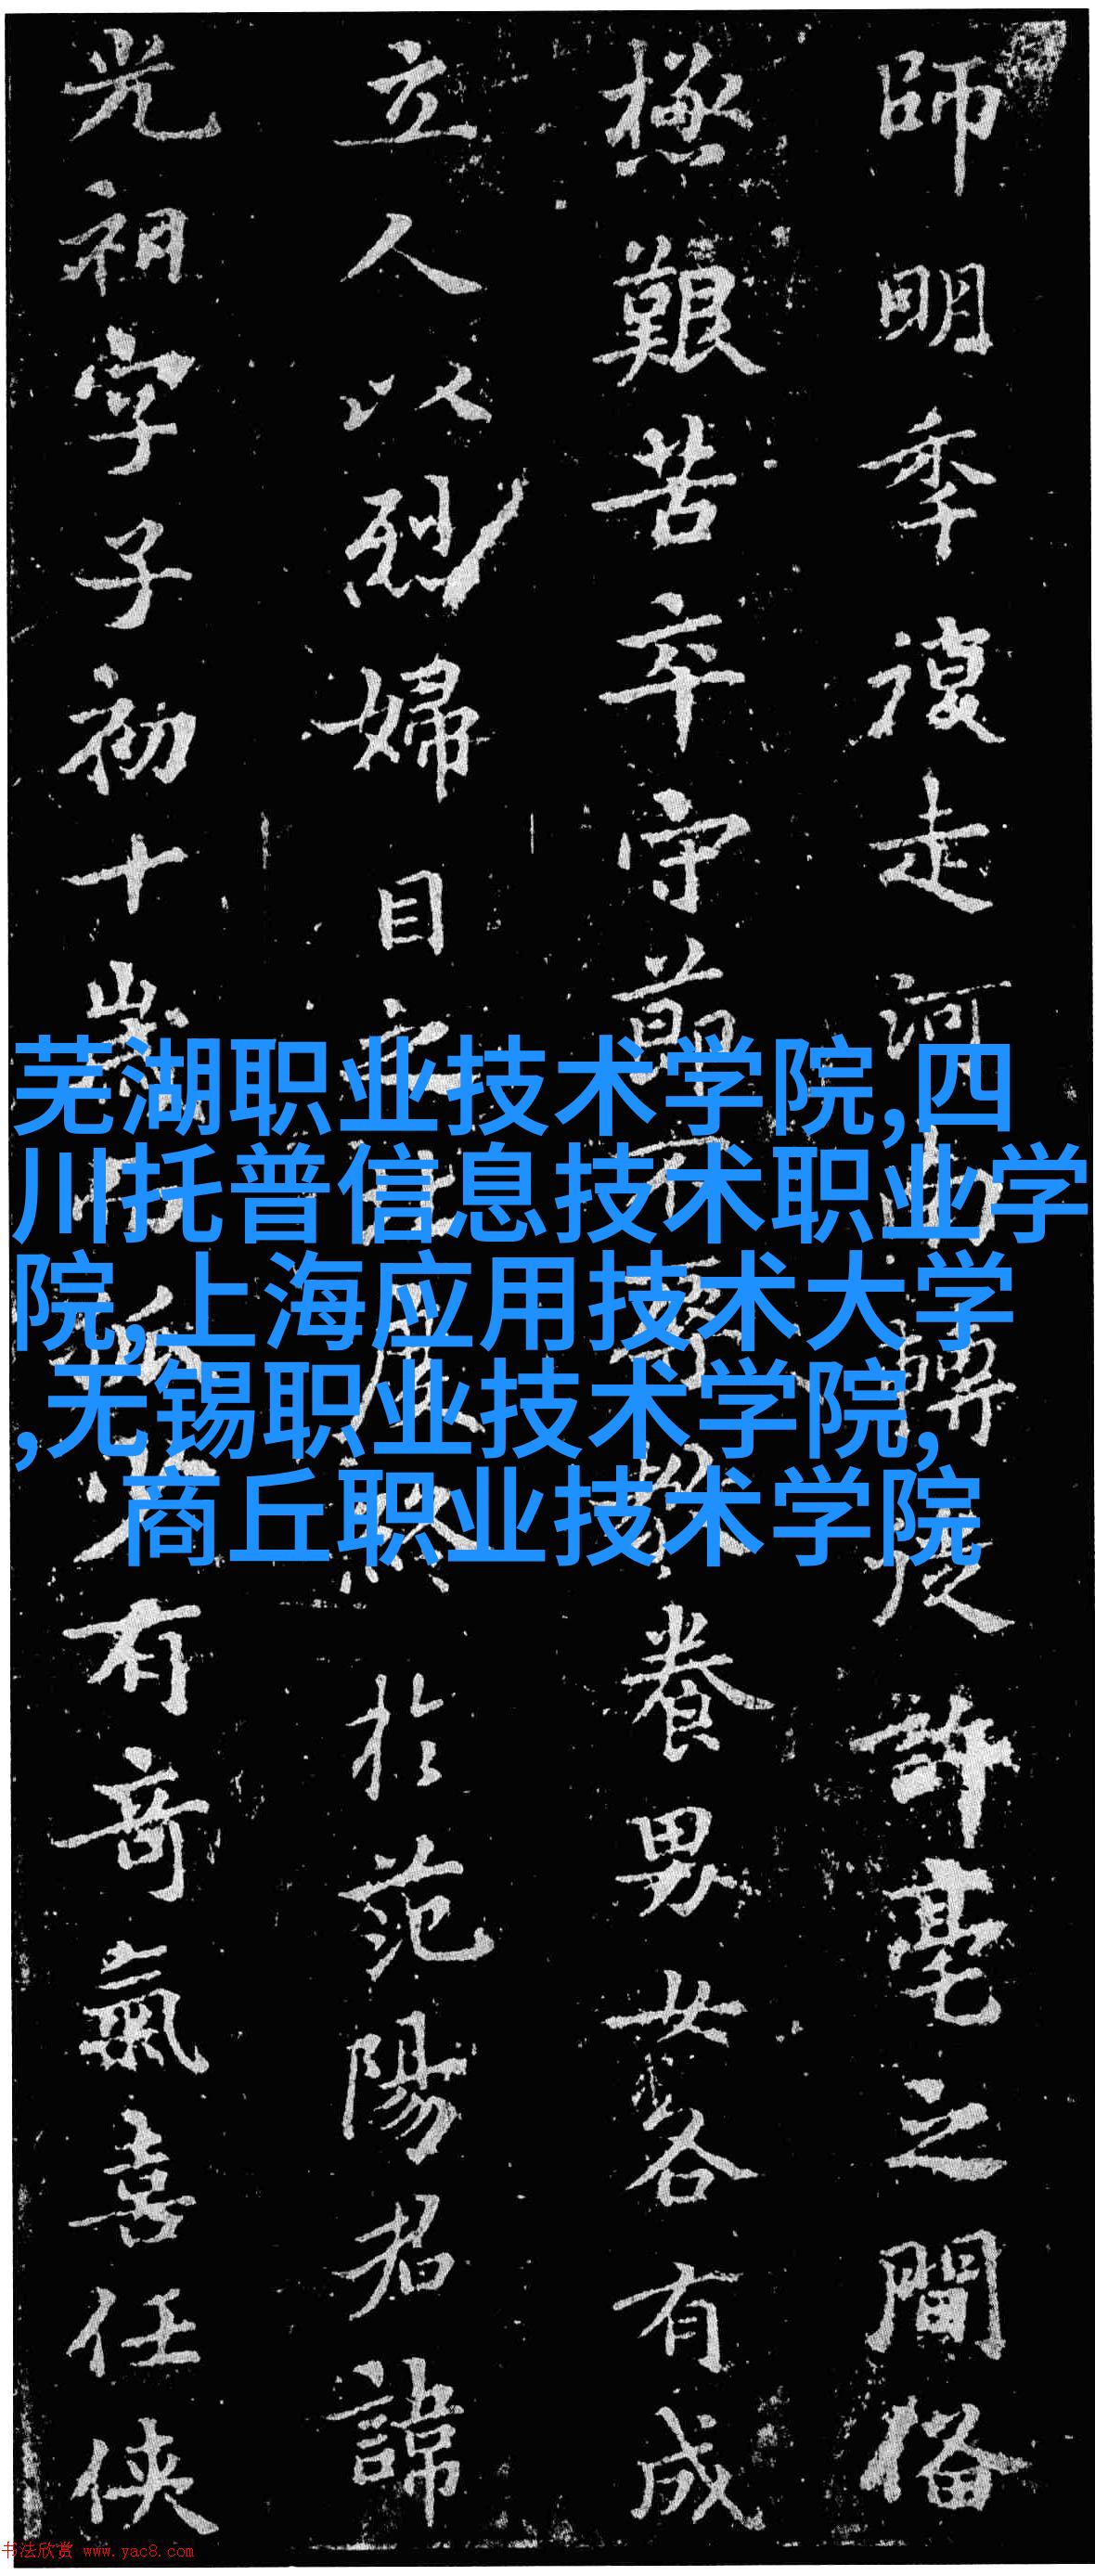 師明季複走河南轉送許毫之間俻
極艱苦卒守節不奪教養男女各有成
立人以烈婦目之世居終於范陽君諱
光祖字子初十歲而孤少有奇氣喜任侠
芜湖职业技术学院,四
川托普信息技术职业学
院,上海应用技术大学
,无锡职业技术学院,
商丘职业技术学院
书法欣赏 www.yac8.com